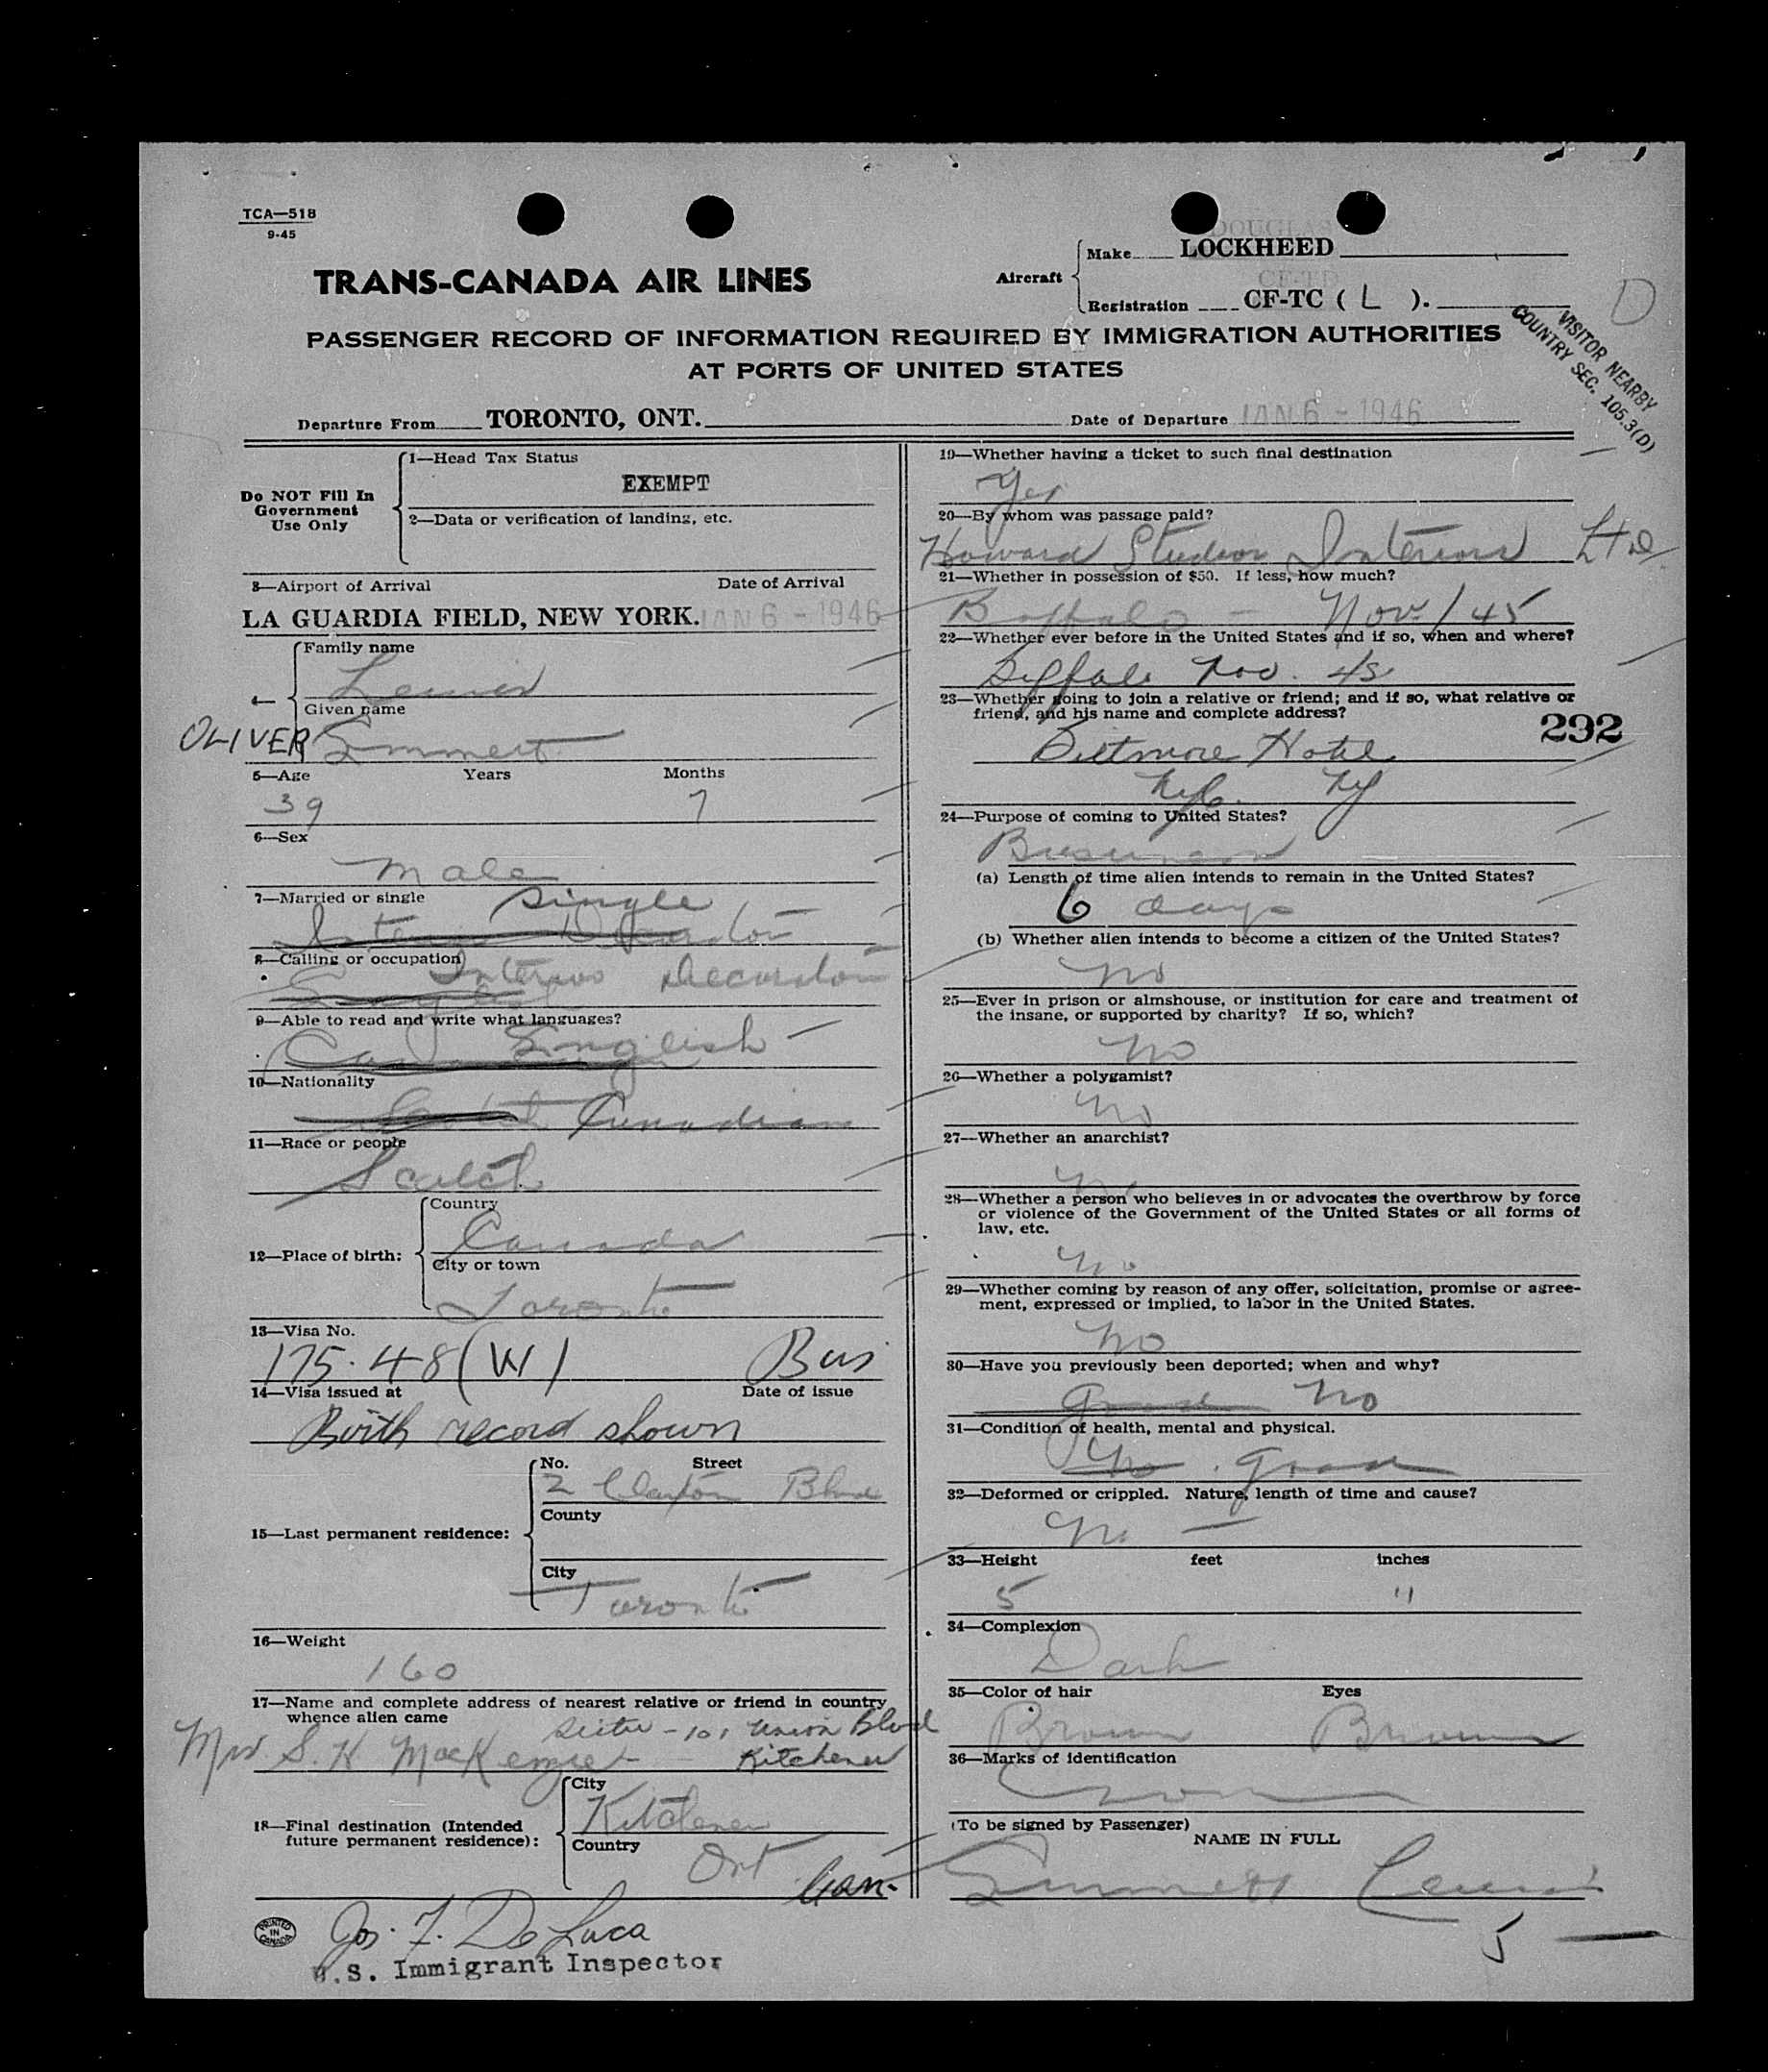 TCA—518
9-45
DOUGLAS
Aircraft
Make LOCKHEED
CF-TD
Registration CF-TC ( L ).
D
TRANS-CANADA AIR LINES
PASSENGER RECORD OF INFORMATION REQUIRED BY IMMIGRATION AUTHORITIES
AT PORTS OF UNITED STATES
VISITOR NEARBY
COUNTRY SEC. 105.3(D)
Departure From TORONTO, ONT. Date of Departure JAN 6 - 1946
Do NOT Fill In
Government
Use Only
1—Head Tax Status
EXEMPT
2—Data or verification of landing, etc.
3—Airport of Arrival Date of Arrival
LA GUARDIA FIELD, NEW YORK. JAN 6 - 1946
4—
Family name
Lewis
Given name
OLIVER Emmett
5—Age Years Months
39 7
6—Sex
Male
7—Married or single Single
Interior Decorator
8—Calling or occupation
Interior Decorator
English
9—Able to read and write what languages?
English
10—Nationality
Canadian
11—Race or people
Scotch
12—Place of birth:
Country
Canada
City or town
Toronto
13—Visa No.
175.48 (W) Bus
14—Visa issued at Date of issue
Birth record shown
15—Last permanent residence:
No. Street
2 Claxton Blvd
County
City
Toronto
16—Weight
160
17—Name and complete address of nearest relative or friend in country
whence alien came
Sister - 101 Union Blvd
Mrs. S. K MacKenzie - Kitchener
18—Final destination (Intended
future permanent residence):
City
Kitchener
Country
Ont Can.
PRINTED
IN
CANADA
Jos. F. De Luca
U.S. Immigrant Inspector
19—Whether having a ticket to such final destination
Yes
20—By whom was passage paid?
Howard Studios Interiors Ltd.
21—Whether in possession of $50. If less, how much?
Buffalo - Nov/45
22—Whether ever before in the United States and if so, when and where?
Buffalo Nov. 45
23—Whether going to join a relative or friend; and if so, what relative or
friend, and his name and complete address?
292
Biltmore Hotel
NyC. Ny
24—Purpose of coming to United States?
Business
(a) Length of time alien intends to remain in the United States?
6 days
(b) Whether alien intends to become a citizen of the United States?
No
25—Ever in prison or almshouse, or institution for care and treatment of
the insane, or supported by charity? If so, which?
No
26—Whether a polygamist?
No
27—Whether an anarchist?
No
28—Whether a person who believes in or advocates the overthrow by force
or violence of the Government of the United States or all forms of
law, etc.
No
29—Whether coming by reason of any offer, solicitation, promise or agree-
ment, expressed or implied, to labor in the United States.
No
30—Have you previously been deported; when and why?
Good No
31—Condition of health, mental and physical.
No. Good
32—Deformed or crippled. Nature, length of time and cause?
No —
33—Height feet inches
5 11
34—Complexion
Dark
35—Color of hair Eyes
Brown Brown
36—Marks of identification
(To be signed by Passenger)
NAME IN FULL
Emmett Lewis
5 —